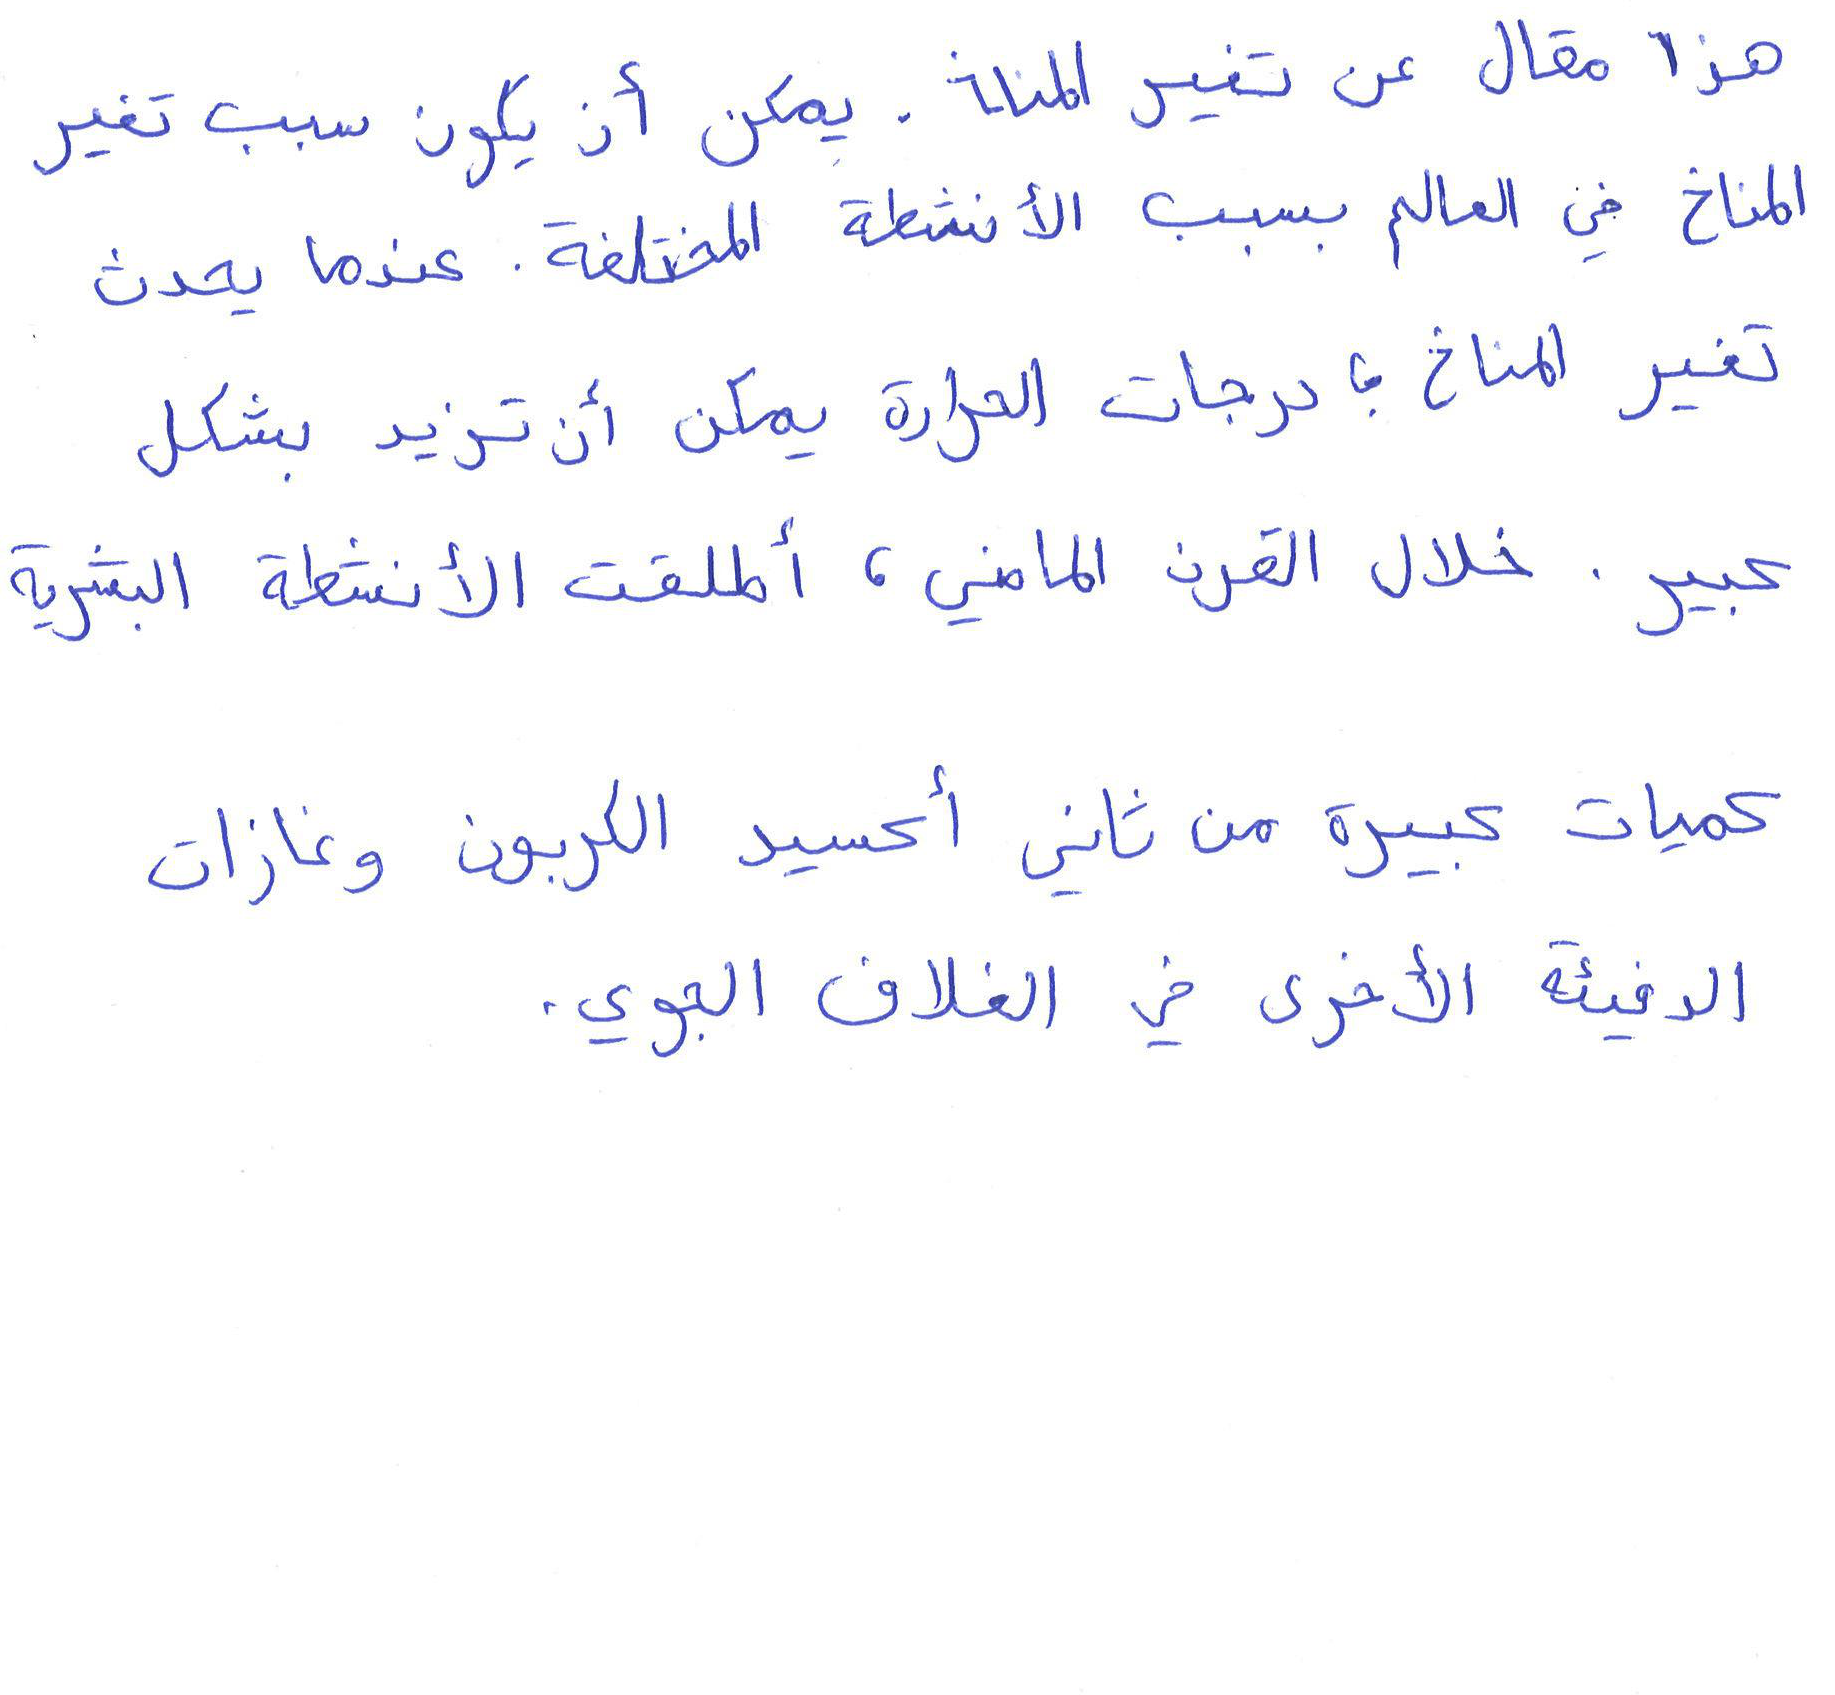 هذا مقال عن تغير المناخ. يمكن أن يكون سبب تغير
المناخ في العالم بسبب الأنشطة المختلفة. عندما يحدث
تغير المناخ، درجات الحرارة يمكن أن تزيد بشكل
كبير. خلال القرن الماضي، أطلقت الأنشطة البشرية
كميات كبيرة من ثاني أكسيد الكربون وغازات
الدفيئة الأخرى في الغلاف الجوي.